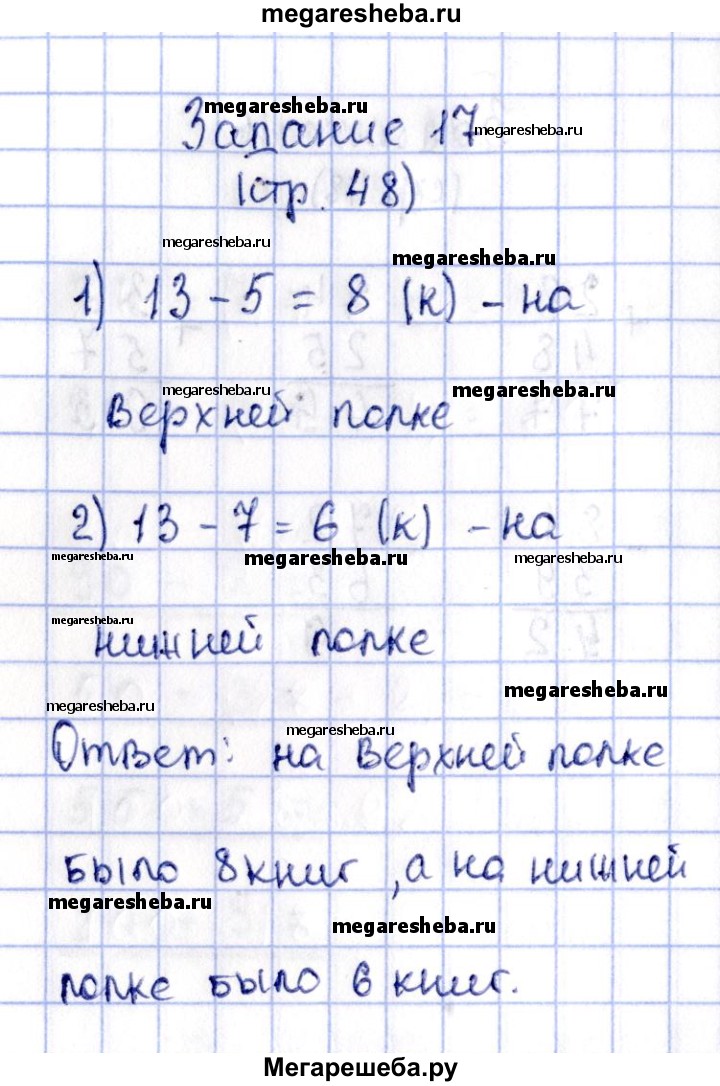 megaresheba.ru
megaresheba.ru
Задание 17 megaresheba.ru
(стр. 48)
megaresheba.ru
megaresheba.ru
1) 13 - 5 = 8 (к) - на
megaresheba.ru
megaresheba.ru
верхней полке
2) 13 - 7 = 6 (к) - на
megaresheba.ru megaresheba.ru megaresheba.ru
megaresheba.ru
нижней полке
megaresheba.ru
megaresheba.ru
megaresheba.ru
Ответ: на верхней полке
было 8 книг, а на нижней
megaresheba.ru
megaresheba.ru
полке было 6 книг.
Мегарешеба.ру